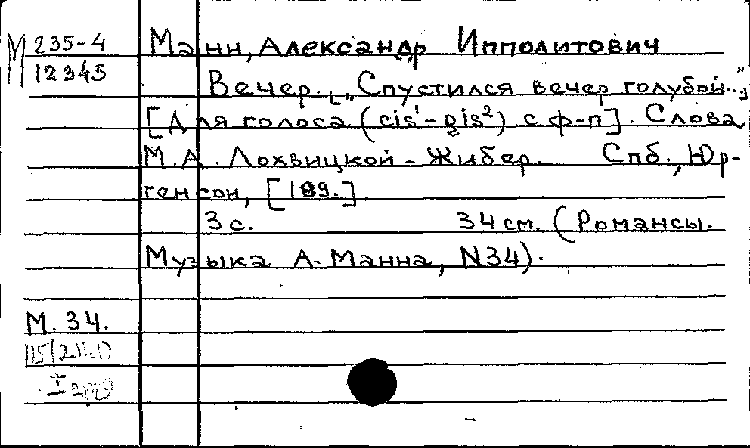 М 235-4
12345
Манн, Александр Ипполитович
Вечер. [„Спустился вечер голубой..."]
[Для голоса (cis¹-gis²) с ф-п]. Слова
М.А. Лохвицкой-Жибер. Спб., Юр-
генсон, [189.]
3 с. 34 см. (Романсы.
Музыка А. Манна, N34).
М. 34.